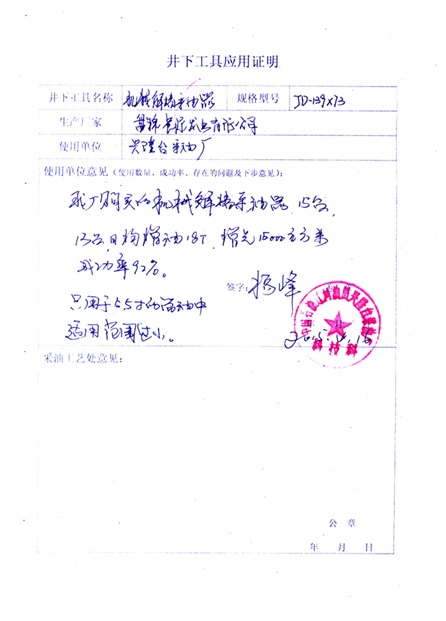 井下工具应用证明
井下工具名称 机械解堵采油器 规格型号 JD-139X73
生产厂家 有限公司
使用单位 兴隆台采油厂
使用单位意见（使用数量、成功率、存在的问题及下步意见）：
我厂购买的机械解堵采油器 15台,
13台日均增油18T, 增气15000立方米
成功率92%。
签字： 峰
只用于5.5寸的 中
适用范围过小。
采油工艺处意见：
公 章
年 月 日